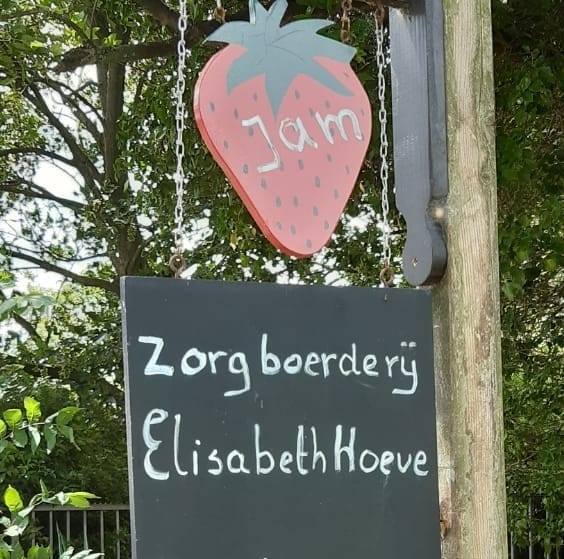 Jam
Zorgboerderÿ
ElisabethHoeve